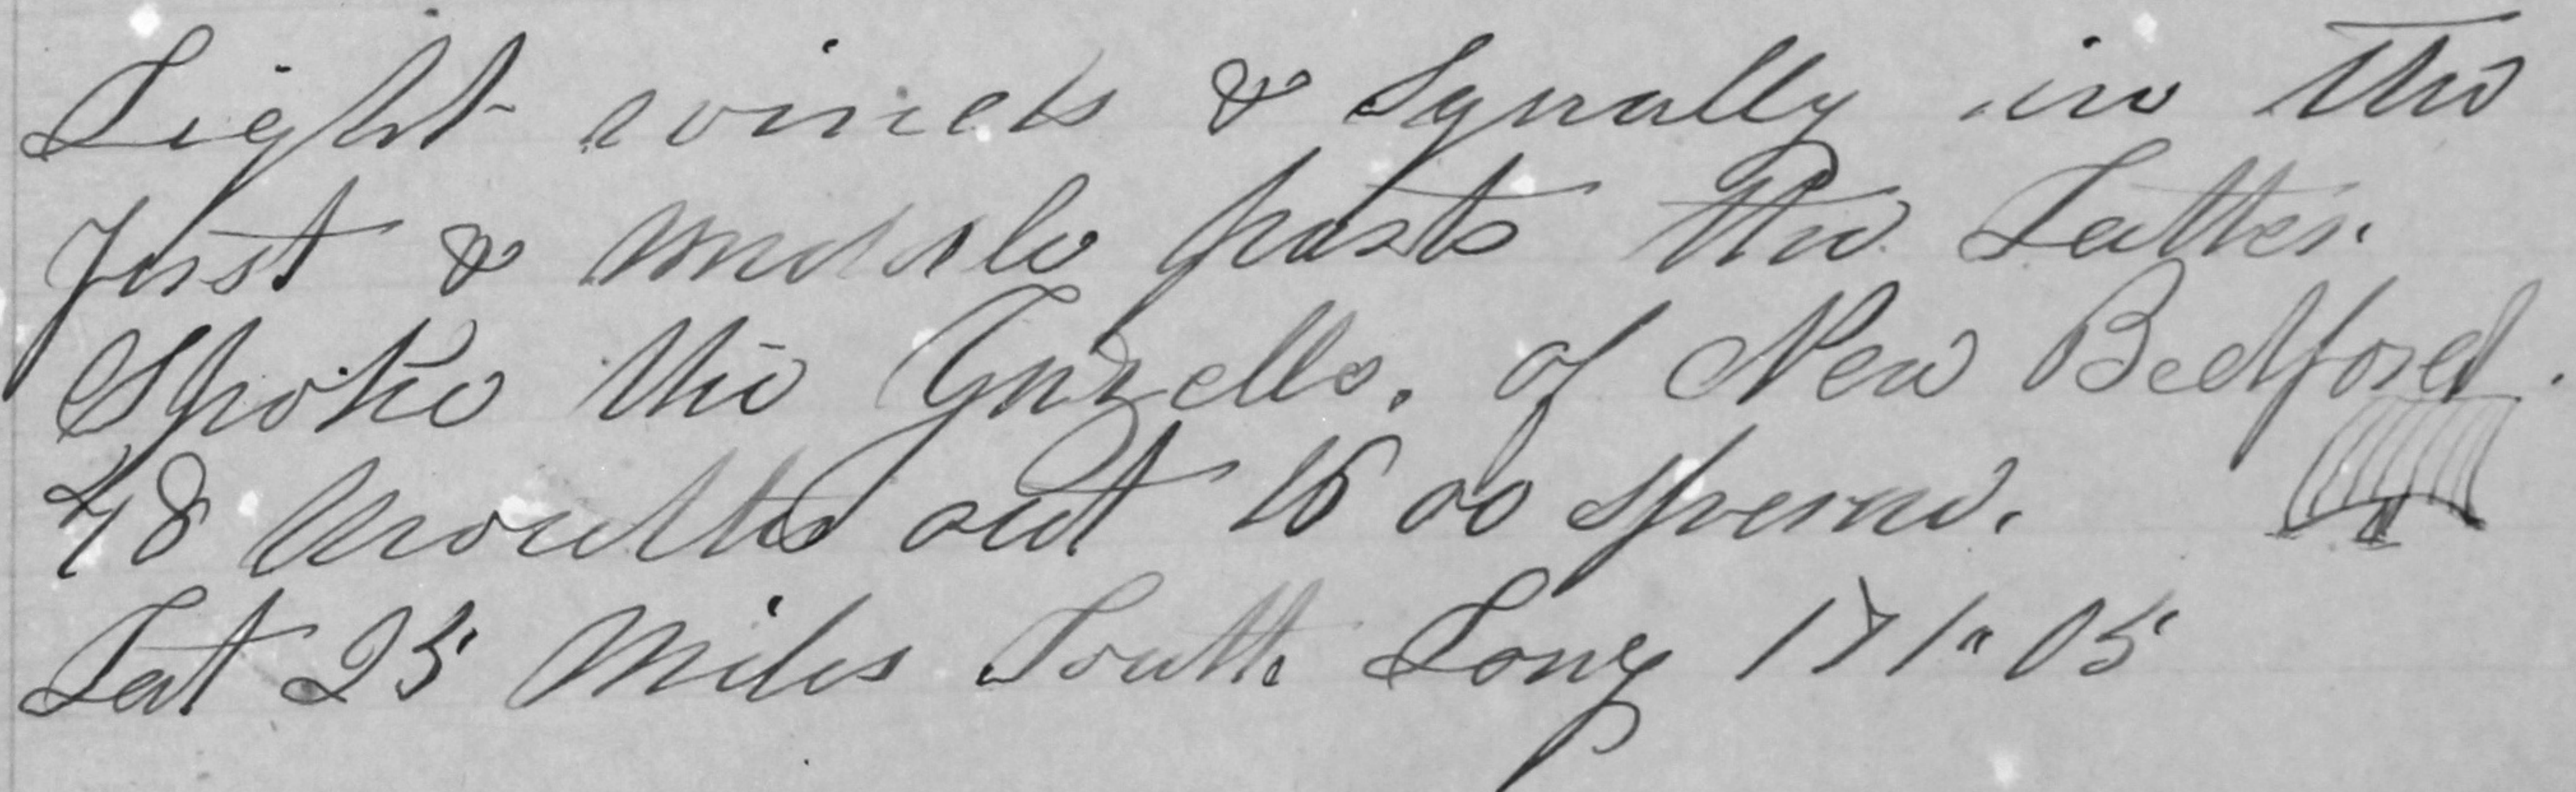 Light winds & Squally in the
first & middle parts the Latter
Spoke the Gazelle. of New Bedford.
48 Months out 1600 sperm.
Lat 25 Miles South Long 171" 05